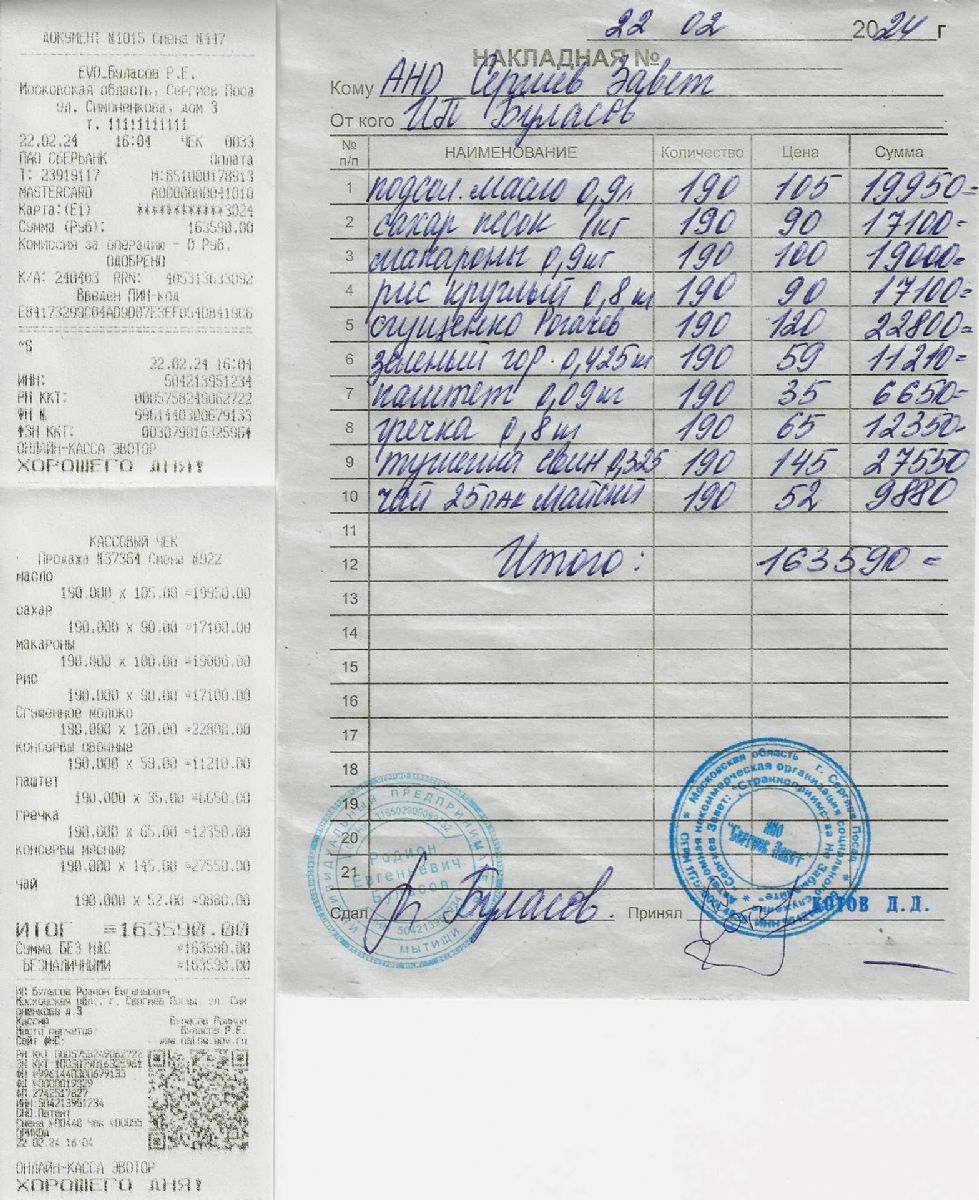 ДОКУМЕНТ №1015 Смена №447
EVO_Буласов Р.Е.
Московская область, Сергиев Поса
ул. Симоненкова, дом 3
т. 11111111111
22.02.24 16:04 ЧЕК 0033
ПАО СБЕРБАНК Оплата
Т: 23919117 М:851000178913
MASTERCARD A0000000041010
Карта:(E1) ************3024
Сумма (Руб): 163590.00
Комиссия за операцию - 0 Руб.
ОДОБРЕНО
К/А: 248403 RRN: 405313633092
Введен ПИН-код
22.02.24 16:04
ИНН: 504213951234
РН ККТ: 0005758249062722
ФН № 9961440300679133
ЗН ККТ: 00307901632596
ОНЛАЙН-КАССА ЭВОТОР
ХОРОШЕГО ДНЯ!
КАССОВЫЙ ЧЕК
Продажа №37364 Смена №922
масло
190.000 x 105.00 =19950.00
сахар
190.000 x 90.00 =17100.00
макароны
190.000 x 100.00 =19000.00
рис
190.000 x 90.00 =17100.00
Сгущенное молоко
190.000 x 120.00 =22800.00
консервы овощные
190.000 x 59.00 =11210.00
паштет
190.000 x 35.00 =6650.00
гречка
190.000 x 65.00 =12350.00
консервы мясные
190.000 x 145.00 =27550.00
чай
190.000 x 52.00 =9880.00
ИТОГ =163590.00
Сумма БЕЗ НДС =163590.00
БЕЗНАЛИЧНЫМИ =163590.00
ИП Буласов Родион Евгеньевич
Московская обл., г. Сергиев Посад, ул. Сим
оненкова д.3
Кассир Буласов Родион
Место расчетов: Буласов Р.Е.
Сайт ФНС: www.nalog.gov.ru
РН ККТ 0005758249062722
ФН 9961440300679133
ИНН 504213951234
СНО Патент
22.02.24 16:04
ОНЛАЙН-КАССА ЭВОТОР
ХОРОШЕГО ДНЯ!
22 02 2024 г
НАКЛАДНАЯ №
Кому АНО Сергиев Завет
От кого ИП Буласов
№ п/п НАИМЕНОВАНИЕ Количество Цена Сумма
1 подсол. масло 0,9л 190 105 19950=
2 сахар песок 1кг 190 90 17100=
3 макароны 0,9кг 190 100 19000=
4 рис круглый 0,8 кг 190 90 17100=
5 сгущенко Рогачев 190 120 22800=
6 зеленый гор. 0,425кг 190 59 11210=
7 паштет 0,09кг 190 35 6650=
8 гречка 0,8 кг 190 65 12350=
9 тушенка свин 0,325 190 145 27550
10 чай 25пак Майский 190 52 9880
11
12 Итого: 163590=
13
14
15
16
17
18
19
20
21
Сдал Буласов. Принял КОТОВ Д.Д.
ИНДИВИДУАЛЬНЫЙ ПРЕДПРИНИМАТЕЛЬ
Родион
Евгеньевич
Буласов
МЫТИЩИ
Московская область г. Сергиев Посад
Автономная некоммерческая организация социального
"Сергиев Завет: "Странноприимства Не Забывайте"
АНО
"Сергиев Завет"